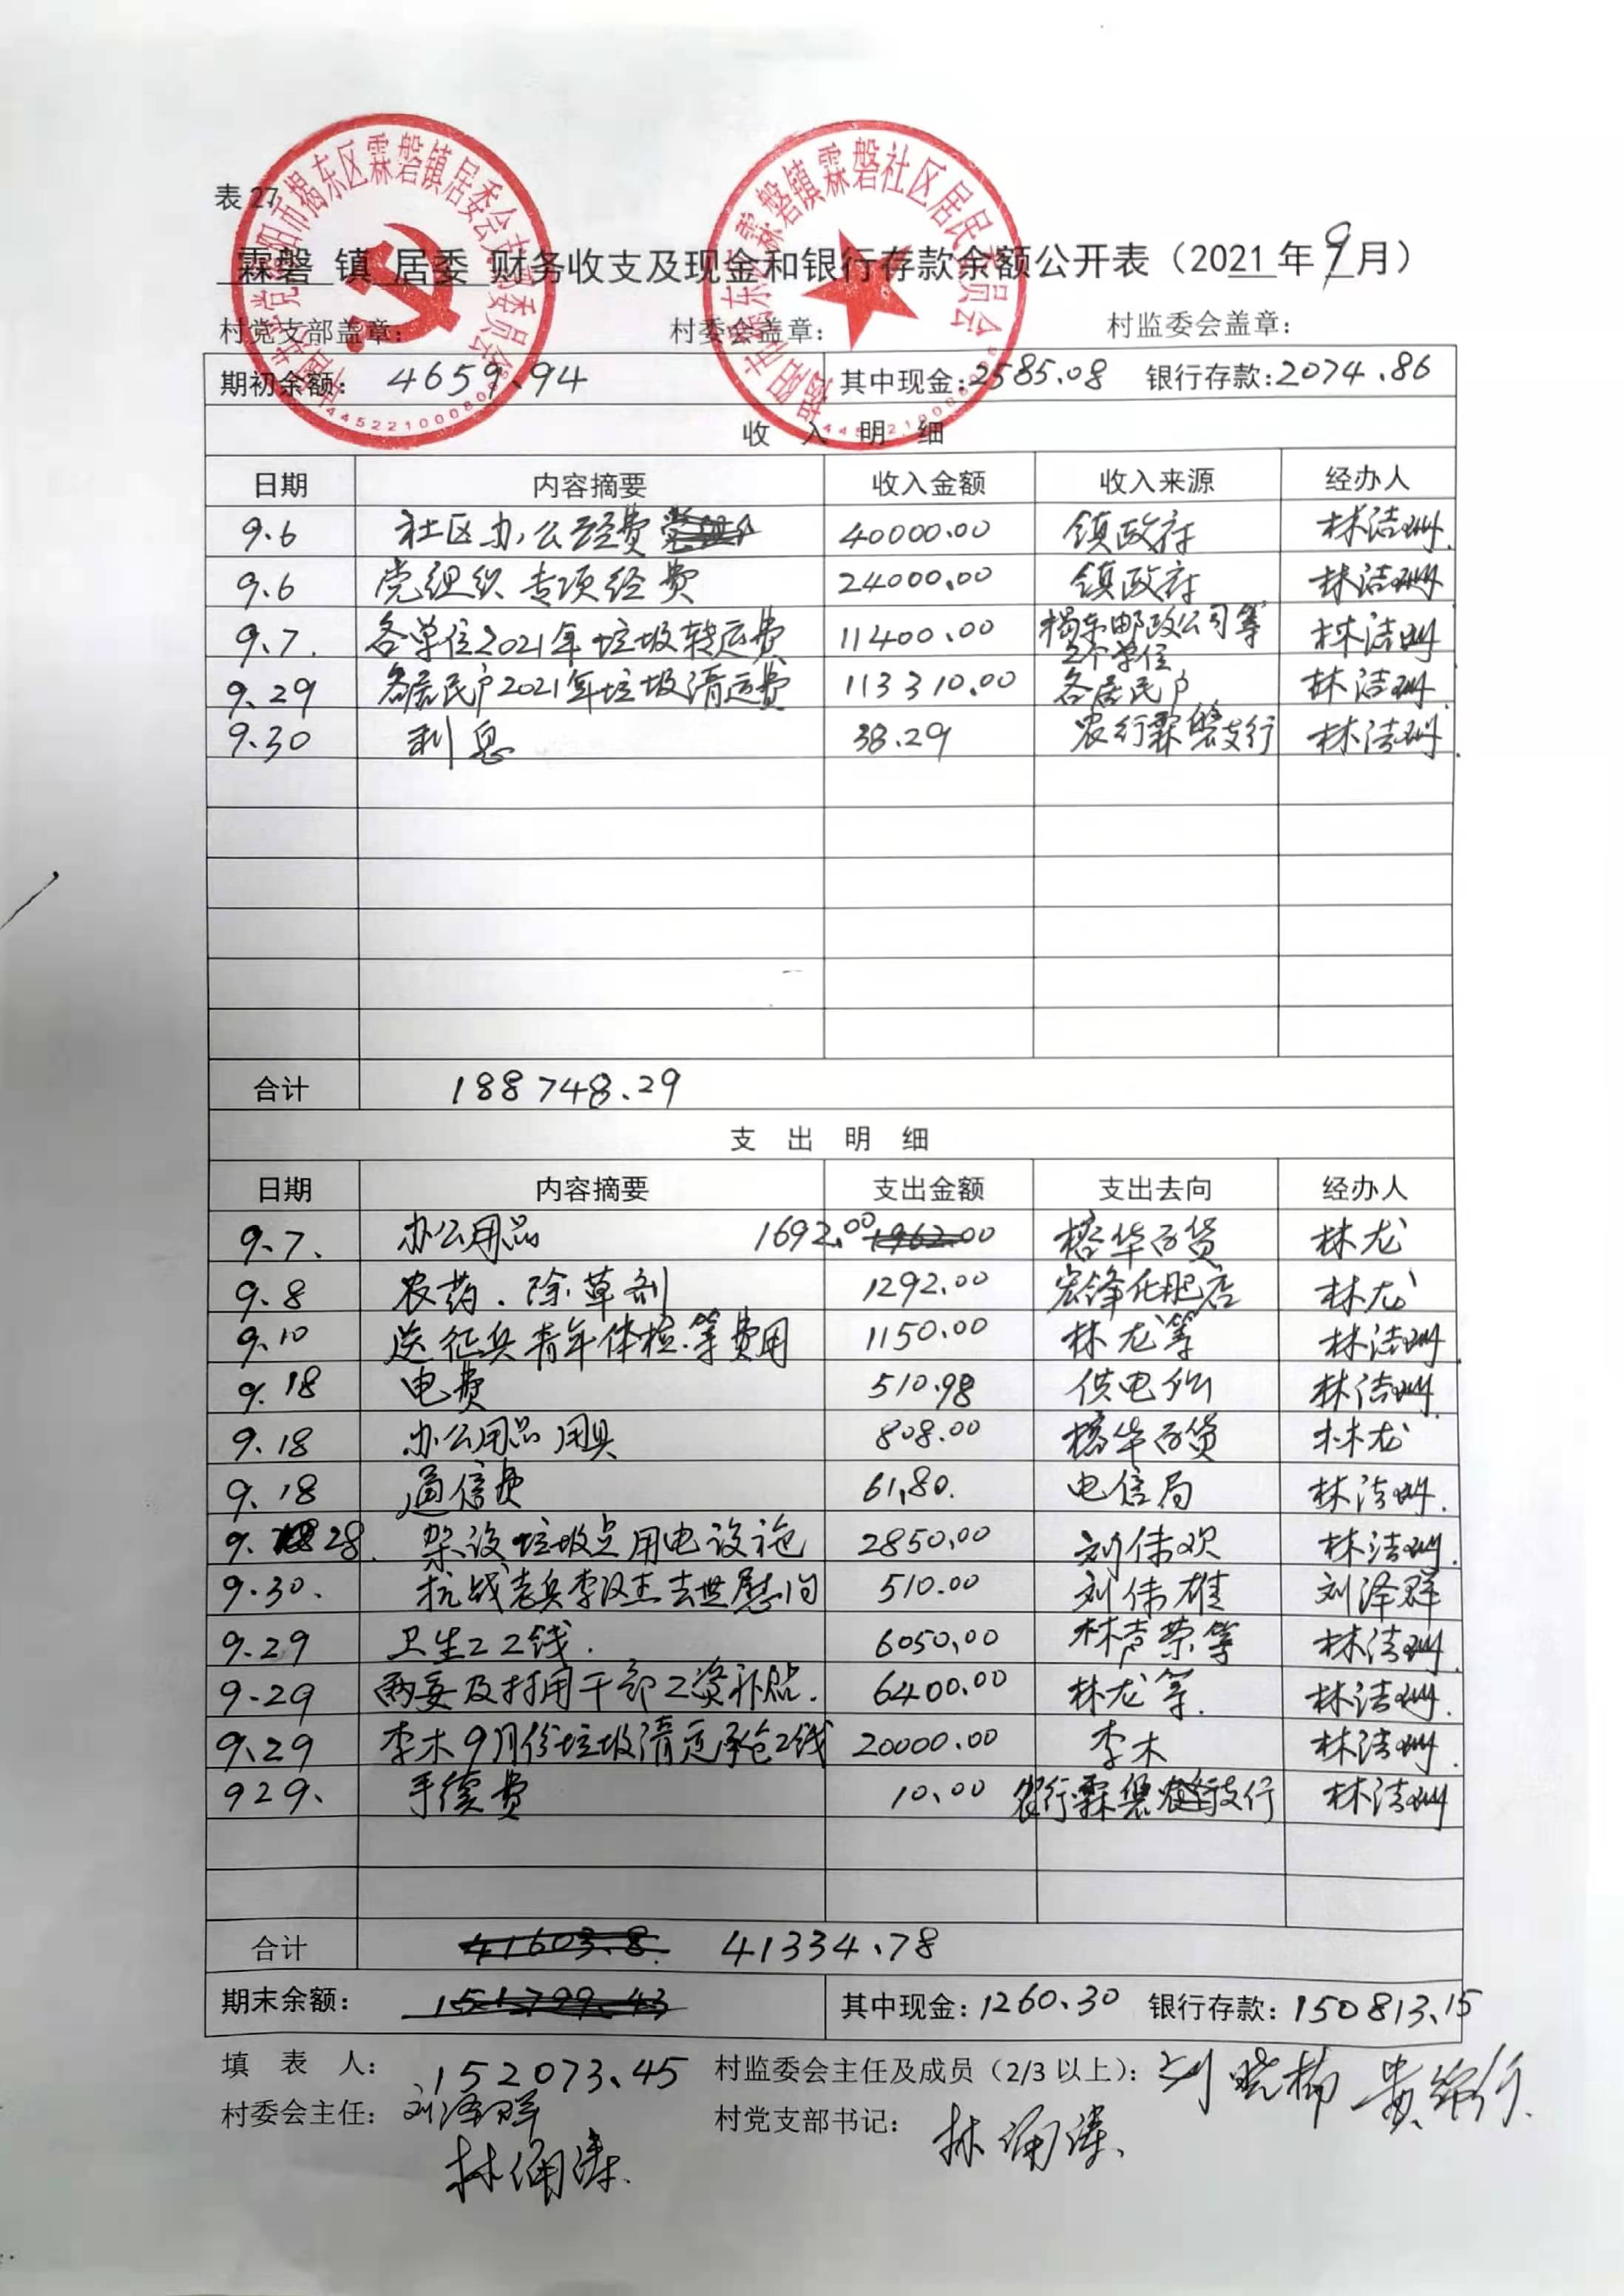 表 27
霖磐 镇 居委 财务收支及现金和银行存款余额公开表（2021 年 9 月）
村党支部盖章： 村委会盖章： 村监委会盖章：
期初余额： 4659.94 其中现金：2585.08 银行存款：2074.86
收 入 明 细
日期 内容摘要 收入金额 收入来源 经办人
9.6 社区办公经费 40000.00 镇政府 林洁
9.6 党组织专项经费 24000.00 镇政府 林洁
9.7. 各单位2021年垃圾转运费 11400.00 揭东邮政公司等 林洁
个单位
9.29 各居民户2021年垃圾清运费 113310.00 各居民户 林洁
9.30 利息 38.29 农行霖磐支行 林洁
合计 188748.29
支 出 明 细
日期 内容摘要 支出金额 支出去向 经办人
9.7. 办公用品 1692.00 榕华百货 林龙
9.8 农药.除草剂 1292.00 宏锋化肥店 林龙
9.10 送征兵青年体检.等费用 1150.00 林龙等 林洁
9.18 电费 510.98 供电 林洁
9.18 办公用品用具 808.00 榕华百货 林龙
9.18 通信费 61.80. 电信局 林洁
9.28. 架设垃圾点用电设施 2850.00 刘伟欢 林洁
9.30. 抗战老兵李汉杰去世慰问 510.00 刘伟雄 刘泽群
9.29 卫生工工钱. 6050.00 林声荣等 林洁
9-29 两委及村用干部工资补贴. 6400.00 林龙等. 林洁
9.29 李木9月份垃圾清运承包工钱 20000.00 李木 林洁
929. 手续费 10.00 农行霖磐支行 林洁
合计 41603.8. 41334.78
期末余额： 151799.43 其中现金：1260.30 银行存款：150813.15
填 表 人： 152073.45 村监委会主任及成员（2/3 以上）：刘晓楠 黄
村委会主任：刘泽群 村党支部书记：林
林